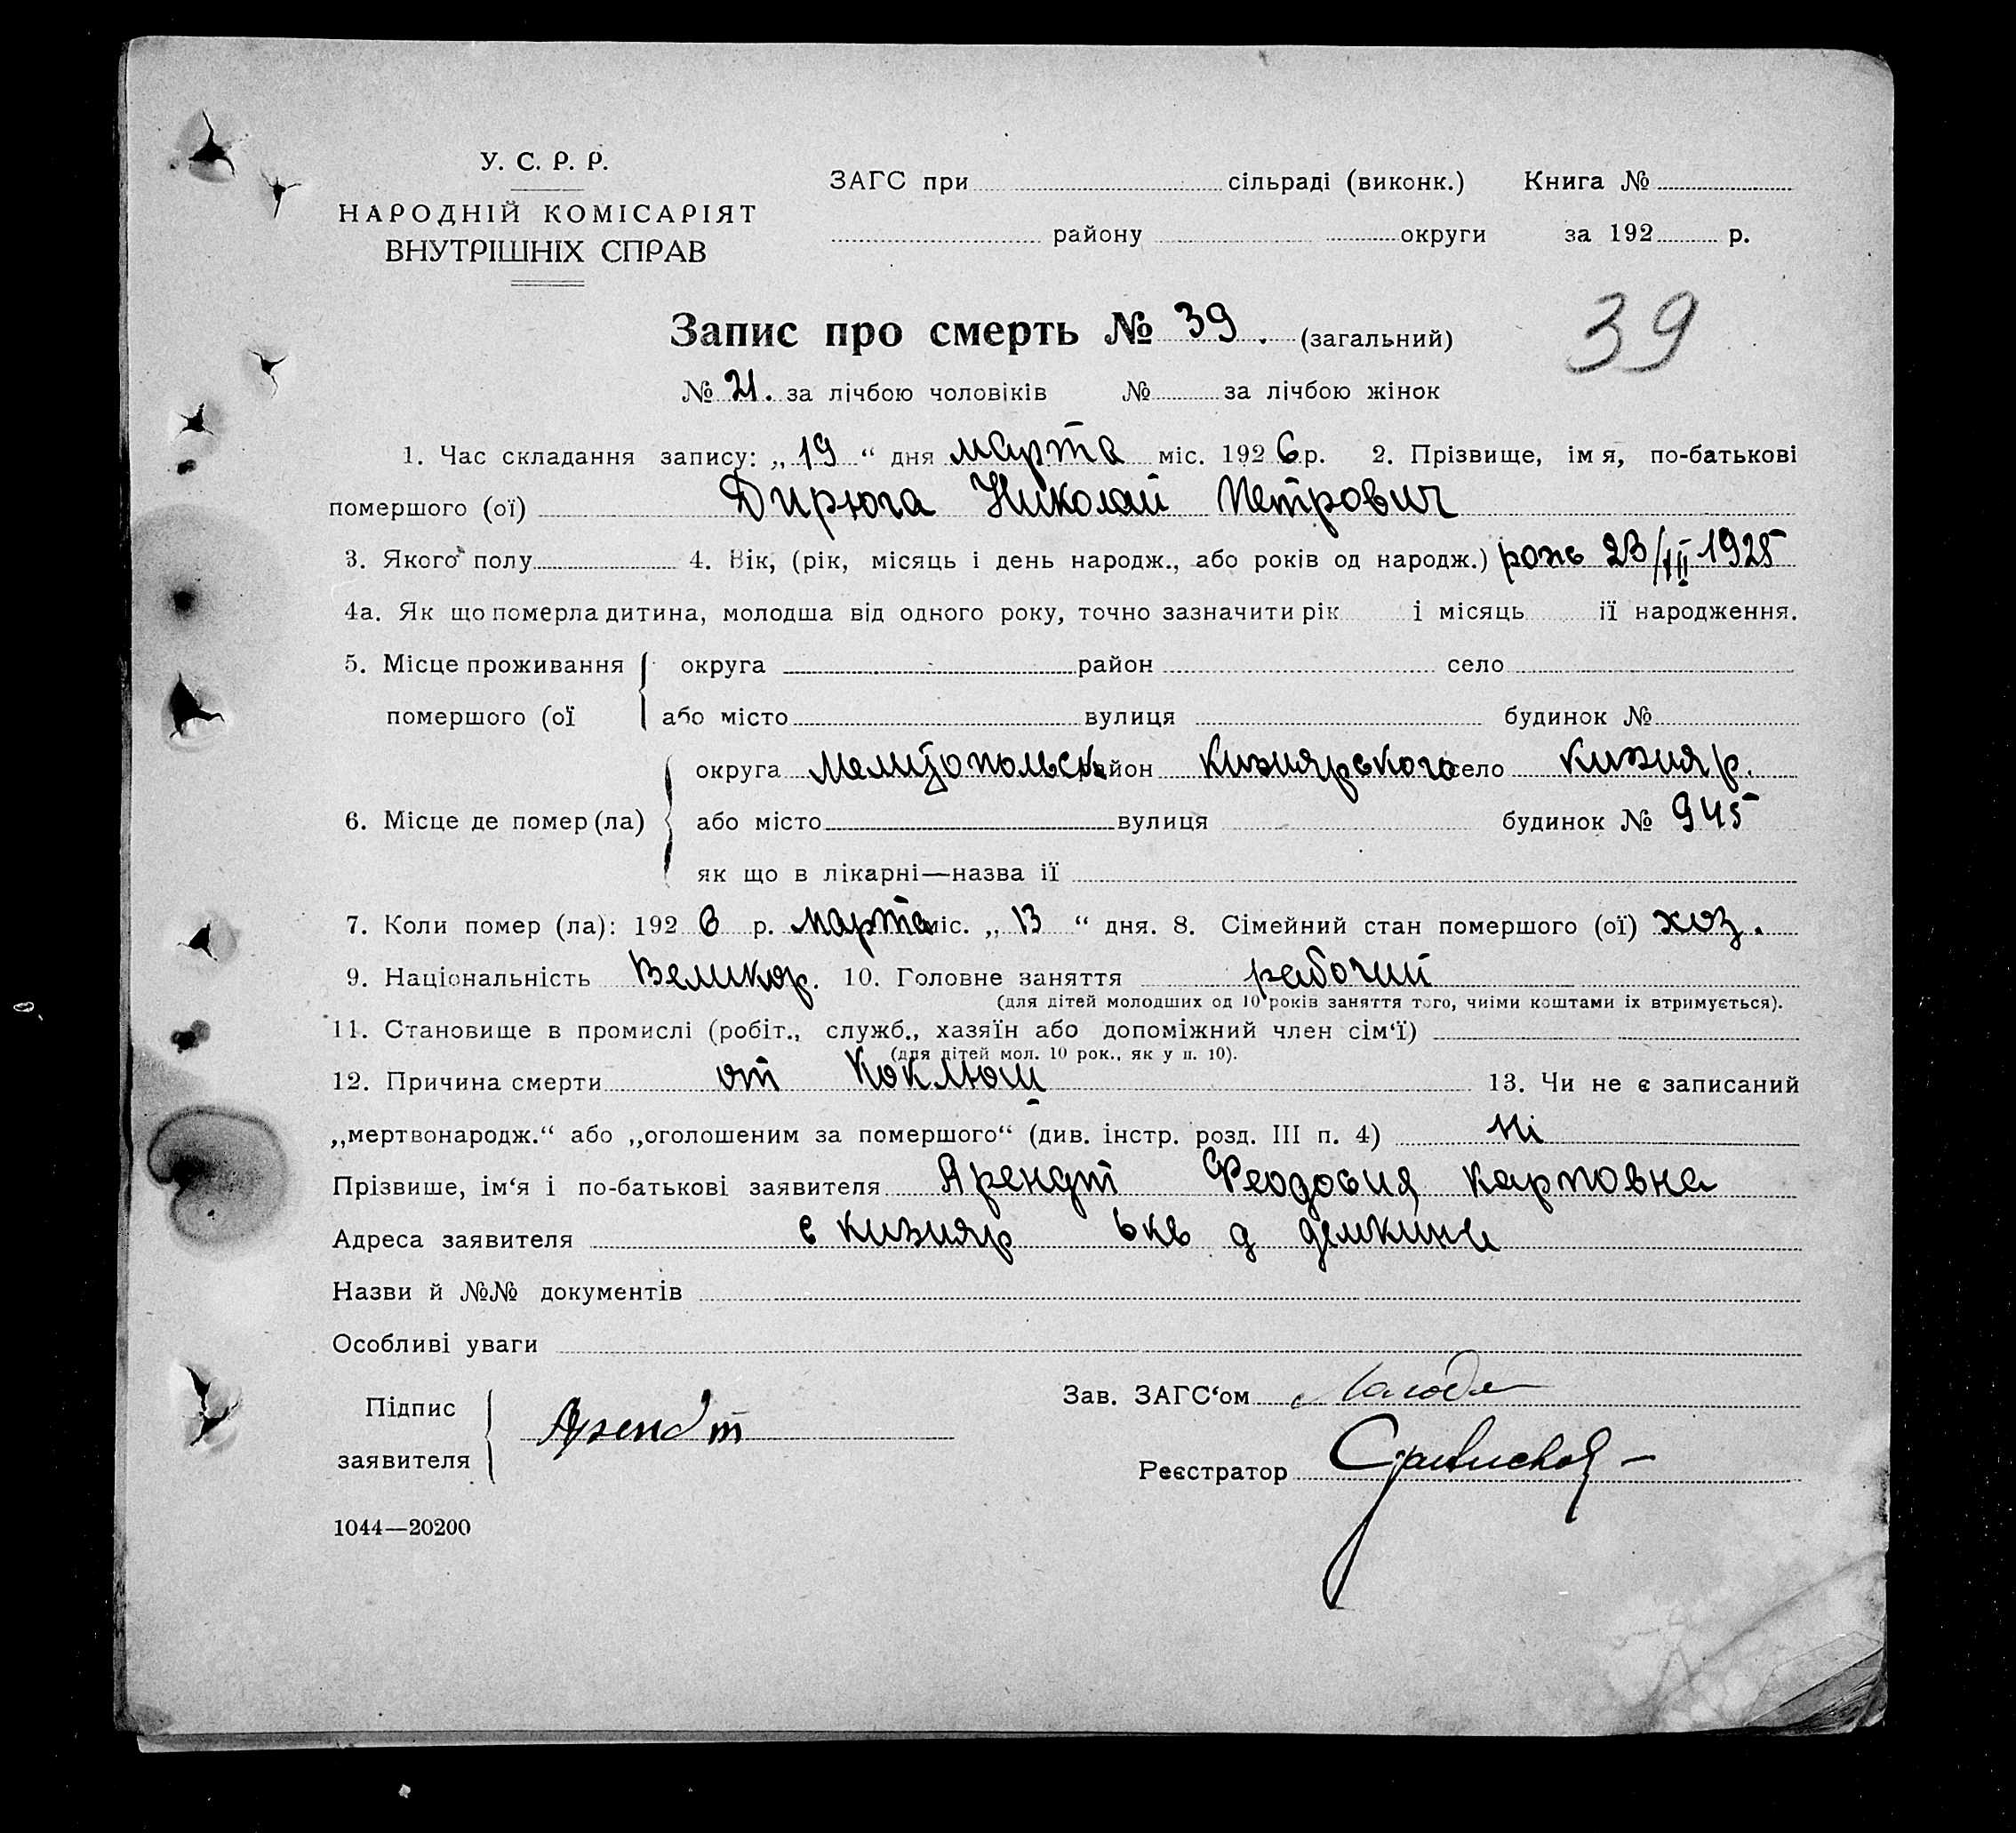 У. С. Р. Р.
НАРОДНІЙ КОМІСАРІЯТ
ВНУТРІШНІХ СПРАВ
ЗАГС при сільраді (виконк.) Книга №
району округи за 192 р.
Запис про смерть № 39. (загальний) 39
№ 21. за лічбою чоловіків № за лічбою жінок
1. Час складання запису: „19“ дня марта міс. 1926 р. 2. Прізвище, імя, по-батькові
помершого (ої) Дирюга Николай Петрович
3. Якого полу 4. Вік, (рік, місяць і день народж., або років од народж.) 23/III 1925
4а. Як що померла дитина, молодша від одного року, точно зазначити рік і місяць її народження.
5. Місце проживання округа район село
помершого (ої або місто вулиця будинок №
округа Мелитопольск район Кизиярского село Кизияр.
6. Місце де помер (ла) або місто вулиця будинок № 945
як що в лікарні—назва її
7. Коли помер (ла): 1926 р. марта міс. „13“ дня. 8. Сімейний стан помершого (ої) хоз.
9. Національність Великор. 10. Головне заняття рабочий
(для дітей молодших од 10 років заняття того, чиіми коштами їх втримується).
11. Становище в промислі (робіт., служб., хазяїн або допоміжний член сім‘ї)
(для дітей мол. 10 рок., як у п. 10).
12. Причина смерти от Коклюш 13. Чи не є записаний
„мертвонародж.“ або „оголошеним за помершого“ (див. інстр. розд. III п. 4) Ні
Прізвише, ім‘я і по-батькові заявителя Арендт Феодосия Карповна
Адреса заявителя с Кизияр 6 кв д Демкина
Назви й №№ документів
Особливі уваги
Підпис
заявителя Арендт
Зав. ЗАГС‘ом
Реєстратор
1044—20200